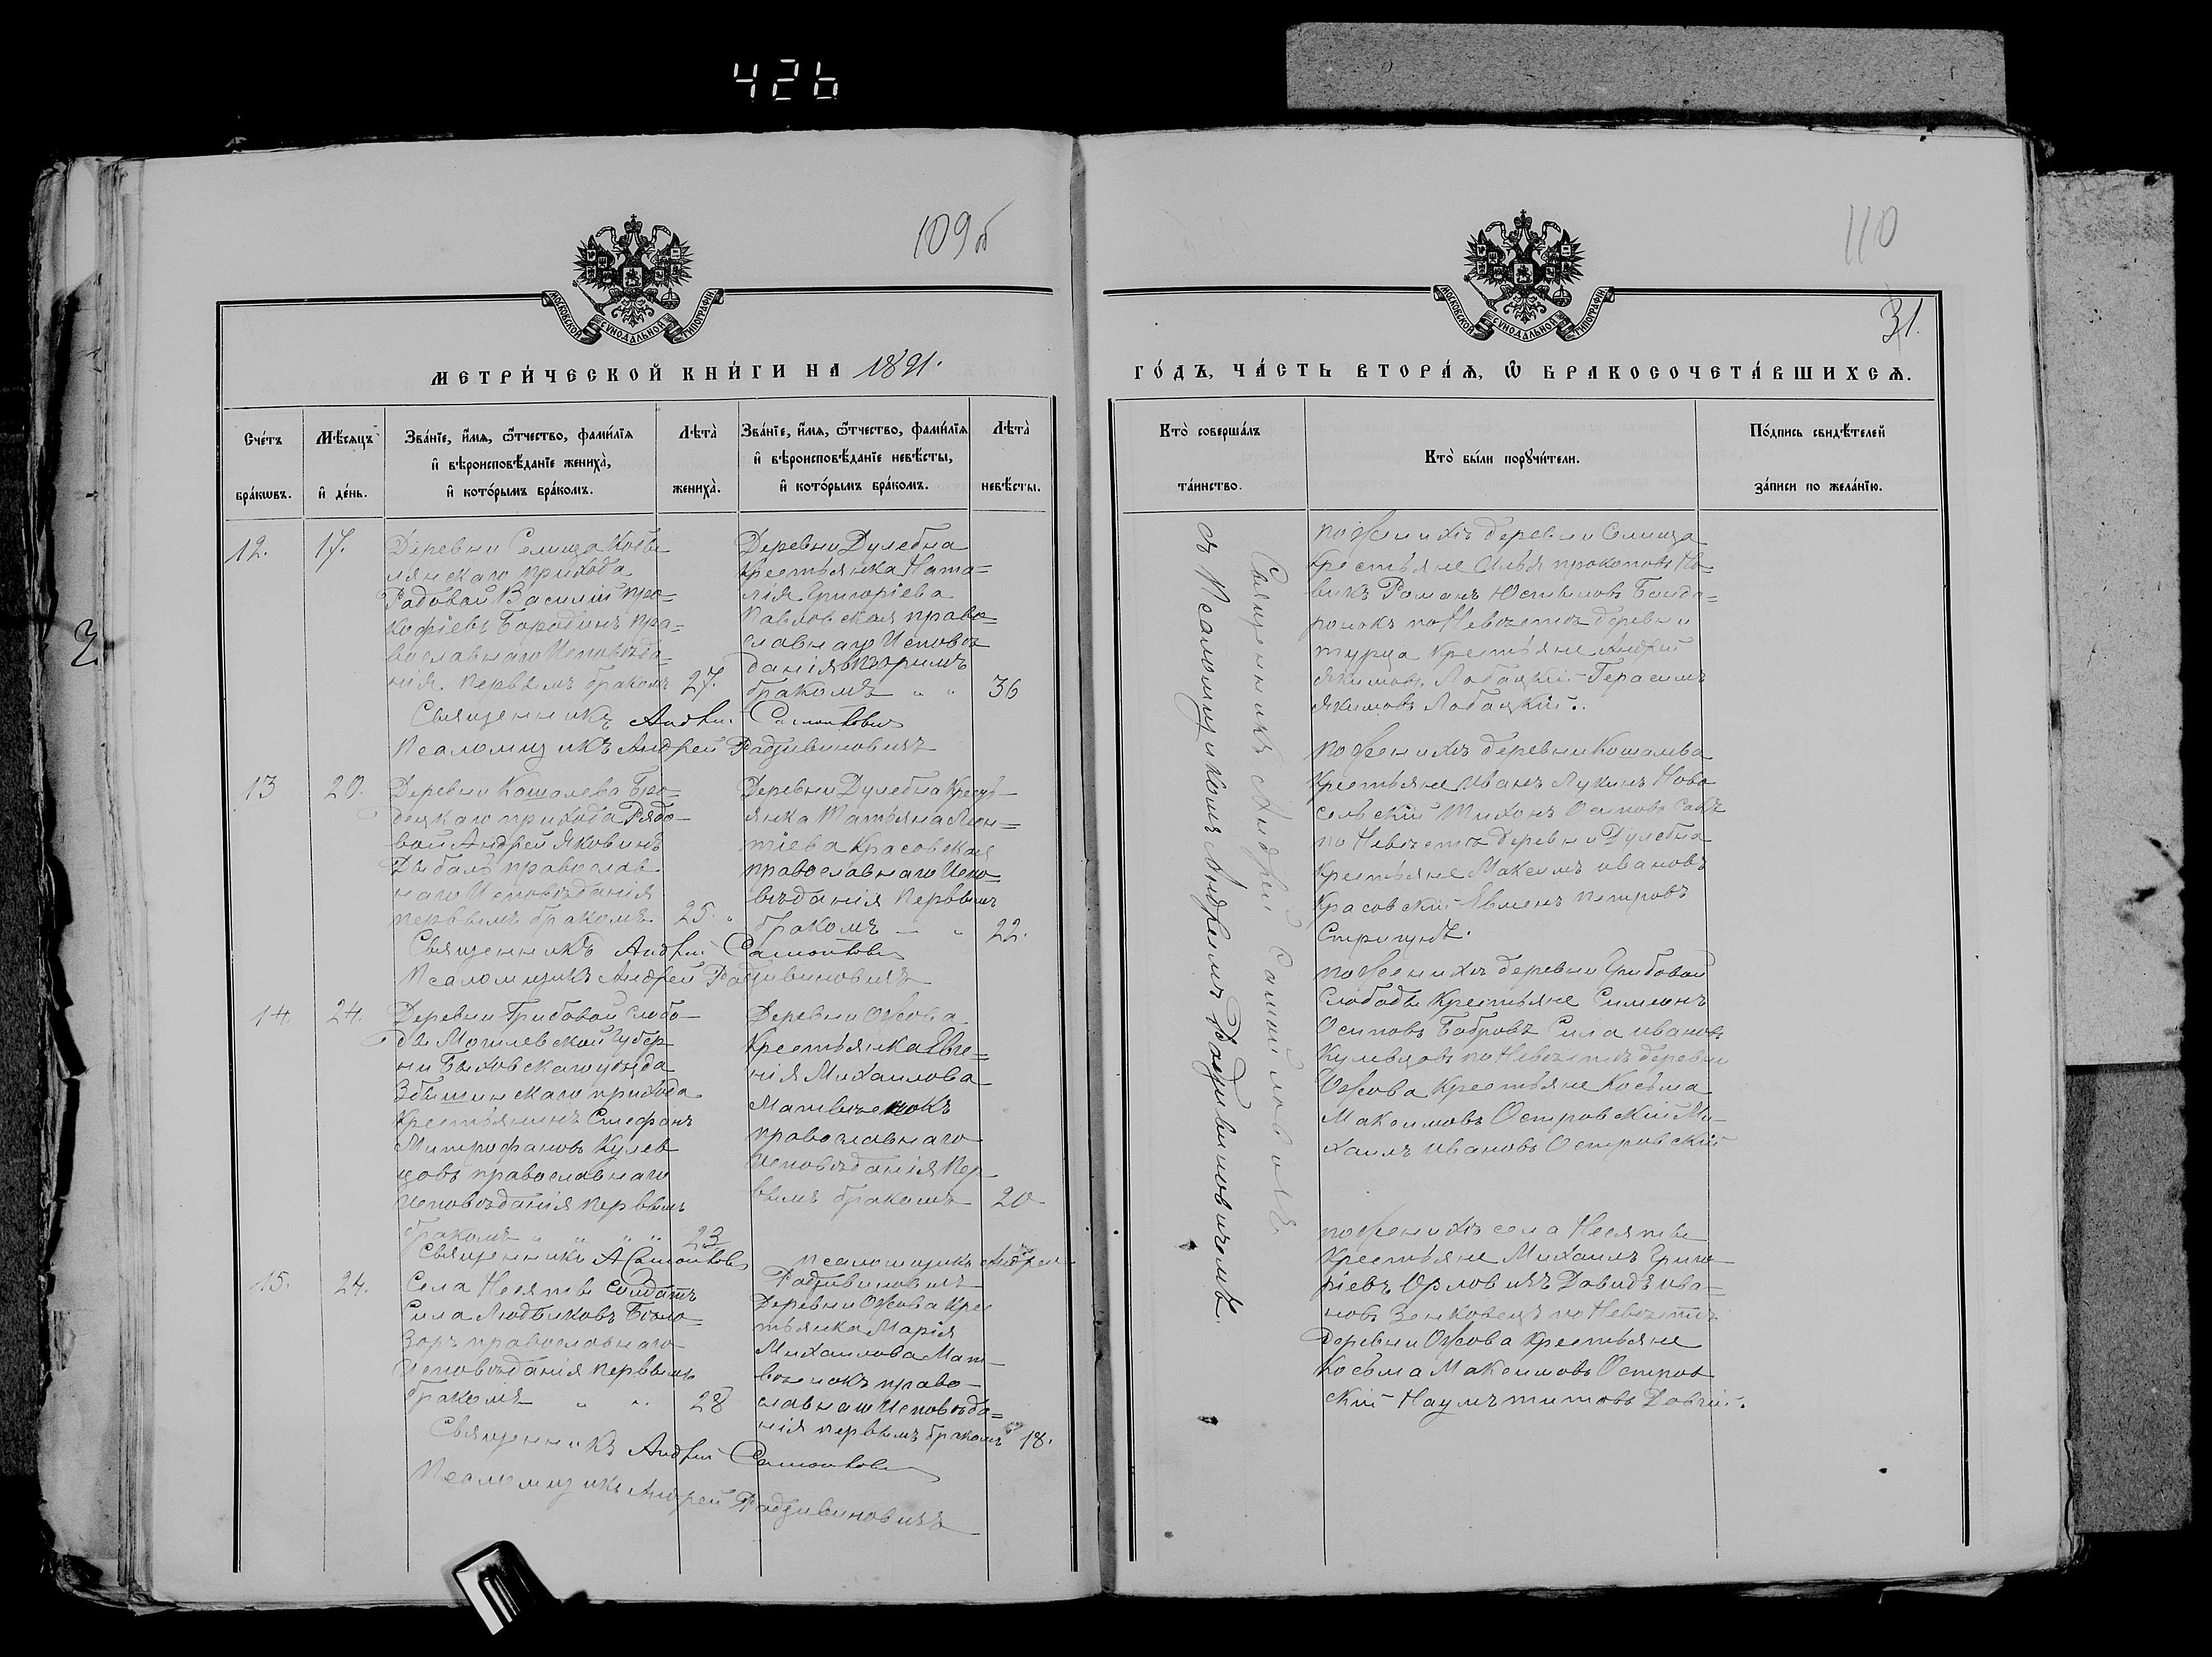 426
109об
МОСКОВСКОЙ СѴНОДАЛЬНОЙ ТИПОГРАФІИ
МЕТРИ́ЧЕСКОЙ КНИ́ГИ НА 1891.
Счéтъ
бра́кѡвъ.
Мѣ́сяцъ
и҆ де́нь.
Зва́нїе, и҆́мѧ, ѻ҆́тчество, фами́лїѧ
и҆ вѣроисповѣ́данїе жениха̀,
и҆ кото́рымъ бра́комъ.
Лѣта̀
жениха̀.
Зва́нїе, и҆́мѧ, ѻ҆́тчество, фами́лїѧ
и҆ вѣроисповѣ́данїе невѣ́сты,
и҆ кото́рымъ бра́комъ.
Лѣта̀
невѣ́сты.
12.
17.
Деревни Селища Кобы
лянскаго прихода
Рядовой Василій про=
кофіевъ Бородинъ пра=
вославнаго Исповѣда=
нія. первымъ бракомъ
27.
Деревни Дулебна
крестьянка Ната=
лія Григоріева
Павловская право=
славнаго Исповѣ
данія вторымъ
бракомъ „ „
36
Священникъ Андрей Самойловичъ
Псаломщикъ Андрей Радзивиновичъ
13
20.
Деревни Кошалева
децкаго прихода Рядо-
вой Андрей Яковинъ
Дыбаль православ
наго Исповѣданія
первымъ бракомъ
25. „
Деревни Дулебна Кресть-
янка Татьяна Леон=
тіева Красовская
православнаго Испо=
вѣданія первымъ
бракомъ — „
22.
Священникъ Андрей Самойловичъ
Псаломщикъ Андрей Радзивиновичъ
14.
24.
Деревни Грибовой слобо-
ды Могилевской губер
ни Быховскаго уѣзда
прихода
Крестьянинъ Стефанъ
Митрофановъ Кулев
цовъ православнаго
Исповѣданія первымъ
бракомъ „ „ „ „
23
Деревни Ожова
Крестьянка Евге=
нія Михаилова
Матвѣенокъ
православнаго
Исповѣданія пер
вымъ бракомъ
20
Священникъ А Самойловичъ
Псаломщикъ Андрей
Радзивиновичъ
15.
24.
Села Несяты Солдатъ
Сила Людвиковъ Бѣло=
зоръ православнаго
Исповѣданія первымъ
бракомъ „ „
28
Деревни Ожова Крес
тьянка Марія
Михаилова Мат-
вѣенокъ право-
славнаго Исповѣда=
нія первымъ бракомъ
18.
Священникъ Андрей Самойловичъ
Псаломщикъ Андрей Радзивиновичъ
110
31.
МОСКОВСКОЙ СѴНОДАЛЬНОЙ ТИПОГРАФІИ
ГО́ДЪ, ЧА́СТЬ ВТОРА́Ѧ, Ѡ҆ БРАКОСОЧЕТА́ВШИХСѦ.
Кто̀ соверша́лъ
та́инство.
Кто̀ бы́ли порꙋчи́тели.
По́дпись свидѣ́телей
за́писи по жела́нїю.
Священникъ Андрей Самойловичъ
съ Псаломщикомъ Андреемъ Радзивиловичемъ.
по Женихѣ деревни Селища
Крестьяне Илья прокоповъ Но-
викъ Романъ Юстиновъ Бонда=
ронокъ по Невѣстѣ деревни
турца Крестьяне Андрей
Якимовъ Лобацкій Герасимъ
Якимовъ Лобацкій.
по Женихѣ деревни Кошалева
Крестьяне Иванъ Лукинъ Ново
сельскій Тихонъ Осиповъ
по Невѣстѣ деревни Дулебна
Крестьяне Максимъ ивановъ
Красовскій Евменъ петровъ
по Женихѣ деревни Грибовой
Слободы Крестьяне Симеонъ
Осиповъ Бобровъ Сила ивановъ
Кулевцовъ по Невѣстѣ деревни
Ожова Крестьяне Косьма
Максимовъ Островскій Ми-
хаилъ ивановъ Островскій
по Женихѣ села Несяты
Крестьяне Михаилъ Григо-
ріевъ Орловичъ Давидъ ива-
новъ Зенковецъ по Невѣстѣ
деревни Ожова крестьяне
Косьма Максимовъ Островъ
скій Наумъ титовъ Довгій.